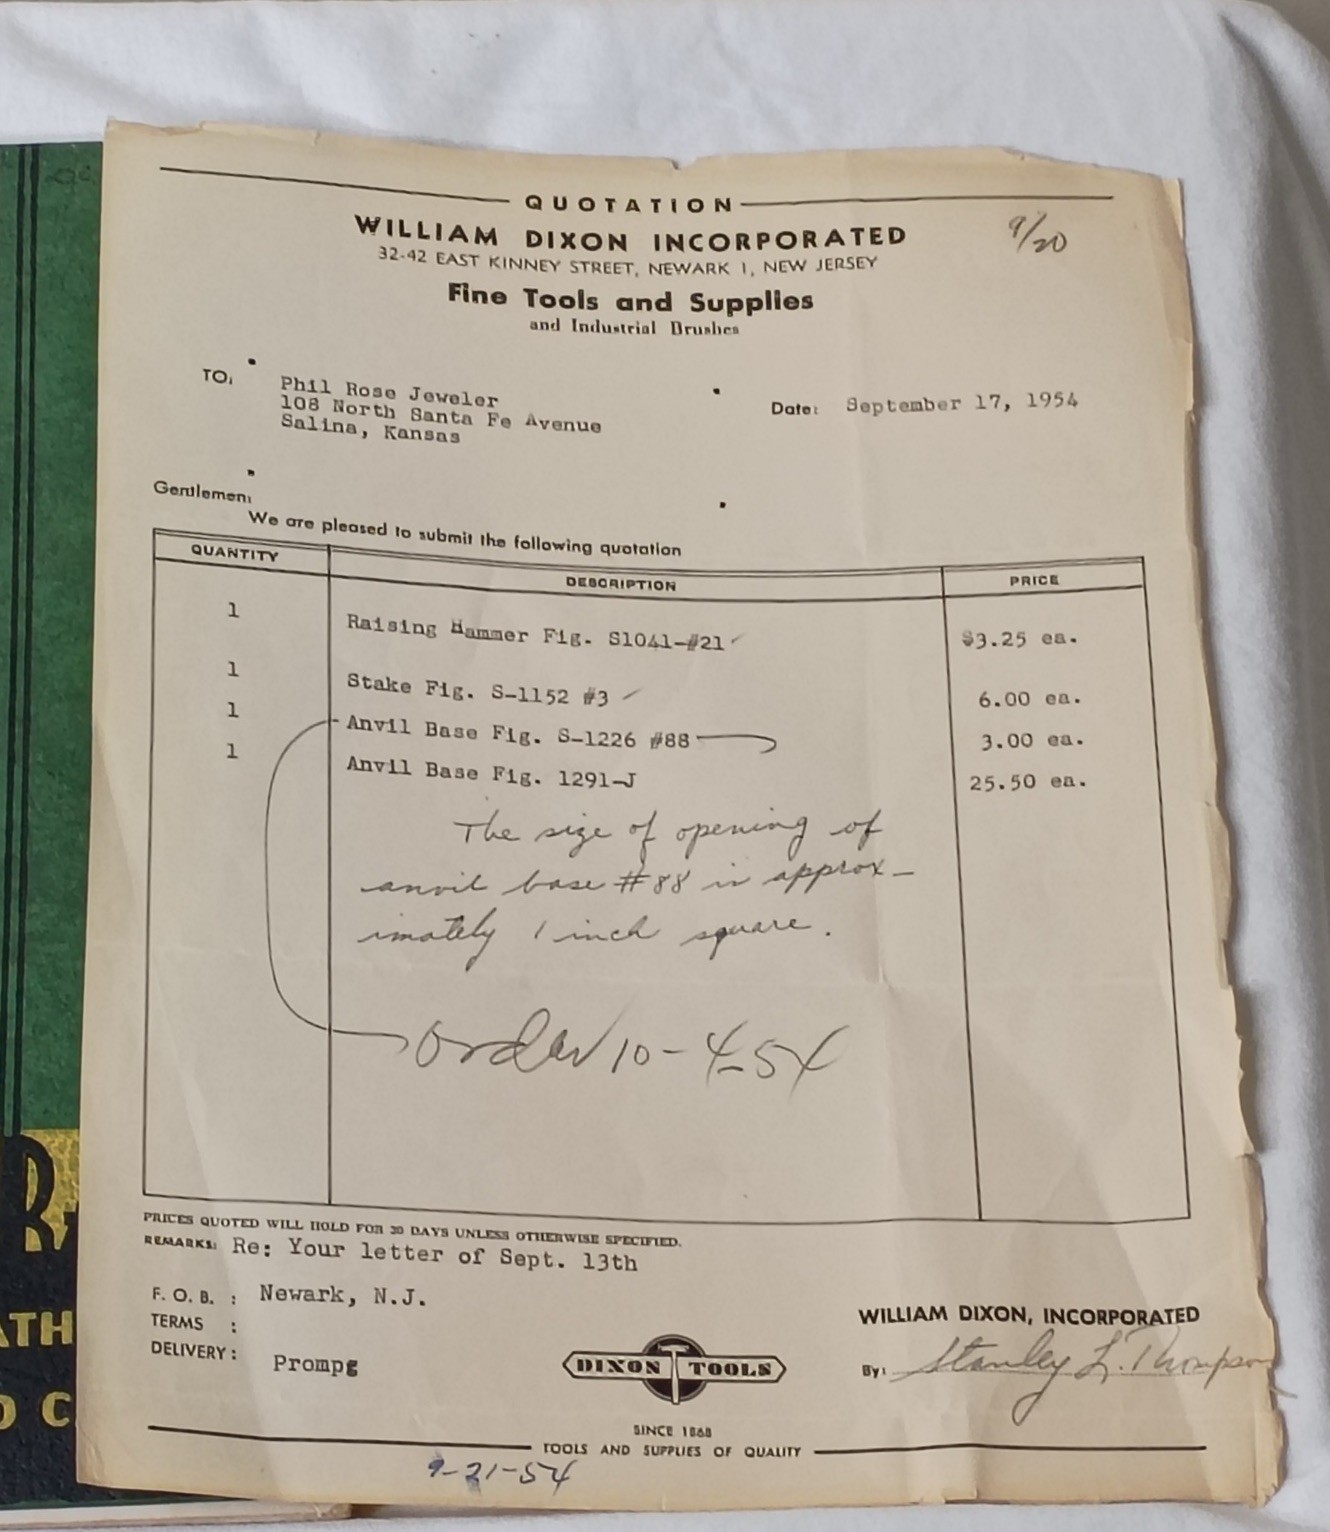 QUOTATION
WILLIAM DIXON INCORPORATED
9/20
32-42 EAST KINNEY STREET, NEWARK 1, NEW JERSEY
Fine Tools and Supplies
and Industrial Brushes
TO:
Phil Rose Jeweler
108 North Santa Fe Avenue
Salina, Kansas
Date: September 17, 1954
Gentlemen:
We are pleased to submit the following quotation
QUANTITY DESCRIPTION PRICE
1 Raising Hammer Fig. S1041-#21 $3.25 ea.
1 Stake Fig. S-1152 #3 6.00 ea.
1 Anvil Base Fig. S-1226 #88 3.00 ea.
1 Anvil Base Fig. 1291-J 25.50 ea.
The size of opening of
anvil base #88 is approx-
imately 1 inch square.
Order 10-4-54
PRICES QUOTED WILL HOLD FOR 30 DAYS UNLESS OTHERWISE SPECIFIED.
REMARKS: Re: Your letter of Sept. 13th
F. O. B. : Newark, N.J.
TERMS :
DELIVERY: Prompg
WILLIAM DIXON, INCORPORATED
By: Stanley L. Thompson
DIXON TOOLS
SINCE 1868
TOOLS AND SUPPLIES OF QUALITY
9-21-54
ATH